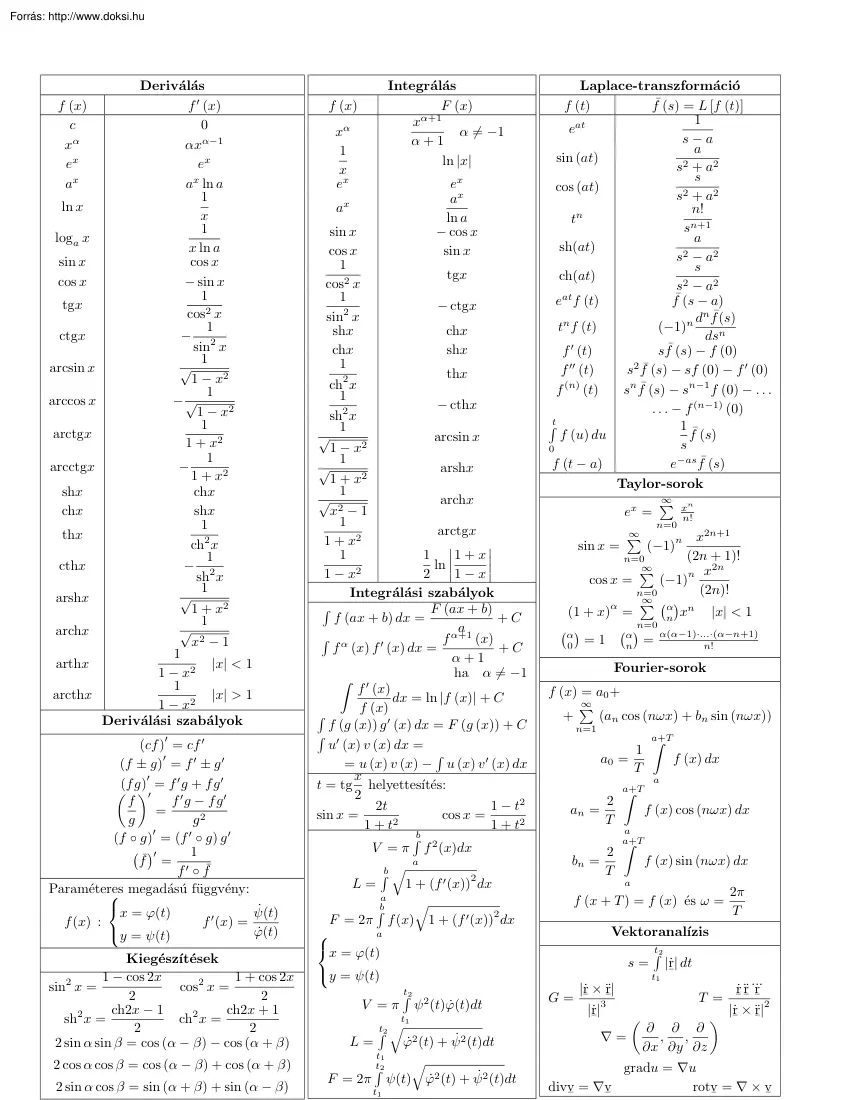 Forrás: http://www.doksi.hu
Deriválás
f (x) f′ (x)
c 0
x^α αx^(α−1)
e^x e^x
a^x a^x ln a
ln x 1/x
log_a x 1/(x ln a)
sin x cos x
cos x − sin x
tgx 1/cos² x
ctgx −1/sin² x
arcsin x 1/√(1 − x²)
arccos x −1/√(1 − x²)
arctgx 1/(1 + x²)
arcctgx −1/(1 + x²)
shx chx
chx shx
thx 1/ch²x
cthx −1/sh²x
arshx 1/√(1 + x²)
archx 1/√(x² − 1)
arthx 1/(1 − x²) |x| < 1
arcthx 1/(1 − x²) |x| > 1
Deriválási szabályok
(cf)′ = cf′
(f ± g)′ = f′ ± g′
(fg)′ = f′g + fg′
(f/g)′ = (f′g − fg′)/g²
(f ∘ g)′ = (f′ ∘ g) g′
(f̄)′ = 1/(f′ ∘ f̄)
Paraméteres megadású függvény:
f(x) : { x = φ(t) f′(x) = ψ̇(t)/φ̇(t)
y = ψ(t)
Kiegészítések
sin² x = (1 − cos 2x)/2 cos² x = (1 + cos 2x)/2
sh²x = (ch2x − 1)/2 ch²x = (ch2x + 1)/2
2 sin α sin β = cos (α − β) − cos (α + β)
2 cos α cos β = cos (α − β) + cos (α + β)
2 sin α cos β = sin (α + β) + sin (α − β)
Integrálás
f (x) F (x)
x^α x^(α+1)/(α + 1) α ≠ −1
1/x ln |x|
e^x e^x
a^x a^x/ln a
sin x − cos x
cos x sin x
1/cos² x tgx
1/sin² x − ctgx
shx chx
chx shx
1/ch²x thx
1/sh²x − cthx
1/√(1 − x²) arcsin x
1/√(1 + x²) arshx
1/√(x² − 1) archx
1/(1 + x²) arctgx
1/(1 − x²) 1/2 ln |(1 + x)/(1 − x)|
Integrálási szabályok
∫ f (ax + b) dx = F (ax + b)/a + C
∫ f^α (x) f′ (x) dx = f^(α+1) (x)/(α + 1) + C
ha α ≠ −1
∫ f′ (x)/f (x) dx = ln |f (x)| + C
∫ f (g (x)) g′ (x) dx = F (g (x)) + C
∫ u′ (x) v (x) dx =
= u (x) v (x) − ∫ u (x) v′ (x) dx
t = tg x/2 helyettesítés:
sin x = 2t/(1 + t²) cos x = (1 − t²)/(1 + t²)
V = π ∫_a^b f²(x)dx
L = ∫_a^b √(1 + (f′(x))²) dx
F = 2π ∫_a^b f(x)√(1 + (f′(x))²) dx
{ x = φ(t)
y = ψ(t)
V = π ∫_t₁^t₂ ψ²(t)φ̇(t)dt
L = ∫_t₁^t₂ √(φ̇²(t) + ψ̇²(t)) dt
F = 2π ∫_t₁^t₂ ψ(t)√(φ̇²(t) + ψ̇²(t)) dt
Laplace-transzformáció
f (t) f̄ (s) = L [f (t)]
e^(at) 1/(s − a)
sin (at) a/(s² + a²)
cos (at) s/(s² + a²)
t^n n!/s^(n+1)
sh(at) a/(s² − a²)
ch(at) s/(s² − a²)
e^(at) f (t) f̄ (s − a)
t^n f (t) (−1)^n d^n f̄(s)/ds^n
f′ (t) sf̄ (s) − f (0)
f″ (t) s² f̄ (s) − sf (0) − f′ (0)
f^(n) (t) s^n f̄ (s) − s^(n−1) f (0) − . . .
. . . − f^(n−1) (0)
∫_0^t f (u) du 1/s f̄ (s)
f (t − a) e^(−as) f̄ (s)
Taylor-sorok
e^x = ∑_{n=0}^∞ x^n/n!
sin x = ∑_{n=0}^∞ (−1)^n x^(2n+1)/(2n + 1)!
cos x = ∑_{n=0}^∞ (−1)^n x^(2n)/(2n)!
(1 + x)^α = ∑_{n=0}^∞ (α n) x^n |x| < 1
(α 0) = 1 (α n) = α(α−1)·...·(α−n+1)/n!
Fourier-sorok
f (x) = a₀+
+ ∑_{n=1}^∞ (a_n cos (nωx) + b_n sin (nωx))
a₀ = 1/T ∫_a^(a+T) f (x) dx
a_n = 2/T ∫_a^(a+T) f (x) cos (nωx) dx
b_n = 2/T ∫_a^(a+T) f (x) sin (nωx) dx
f (x + T) = f (x) és ω = 2π/T
Vektoranalízis
s = ∫_t₁^t₂ |ṙ| dt
G = |ṙ × r̈|/|ṙ|³ T = ṙ r̈ r⃛/|ṙ × r̈|²
∇ = (∂/∂x, ∂/∂y, ∂/∂z)
gradu = ∇u
divv̲ = ∇v̲ rotv̲ = ∇ × v̲